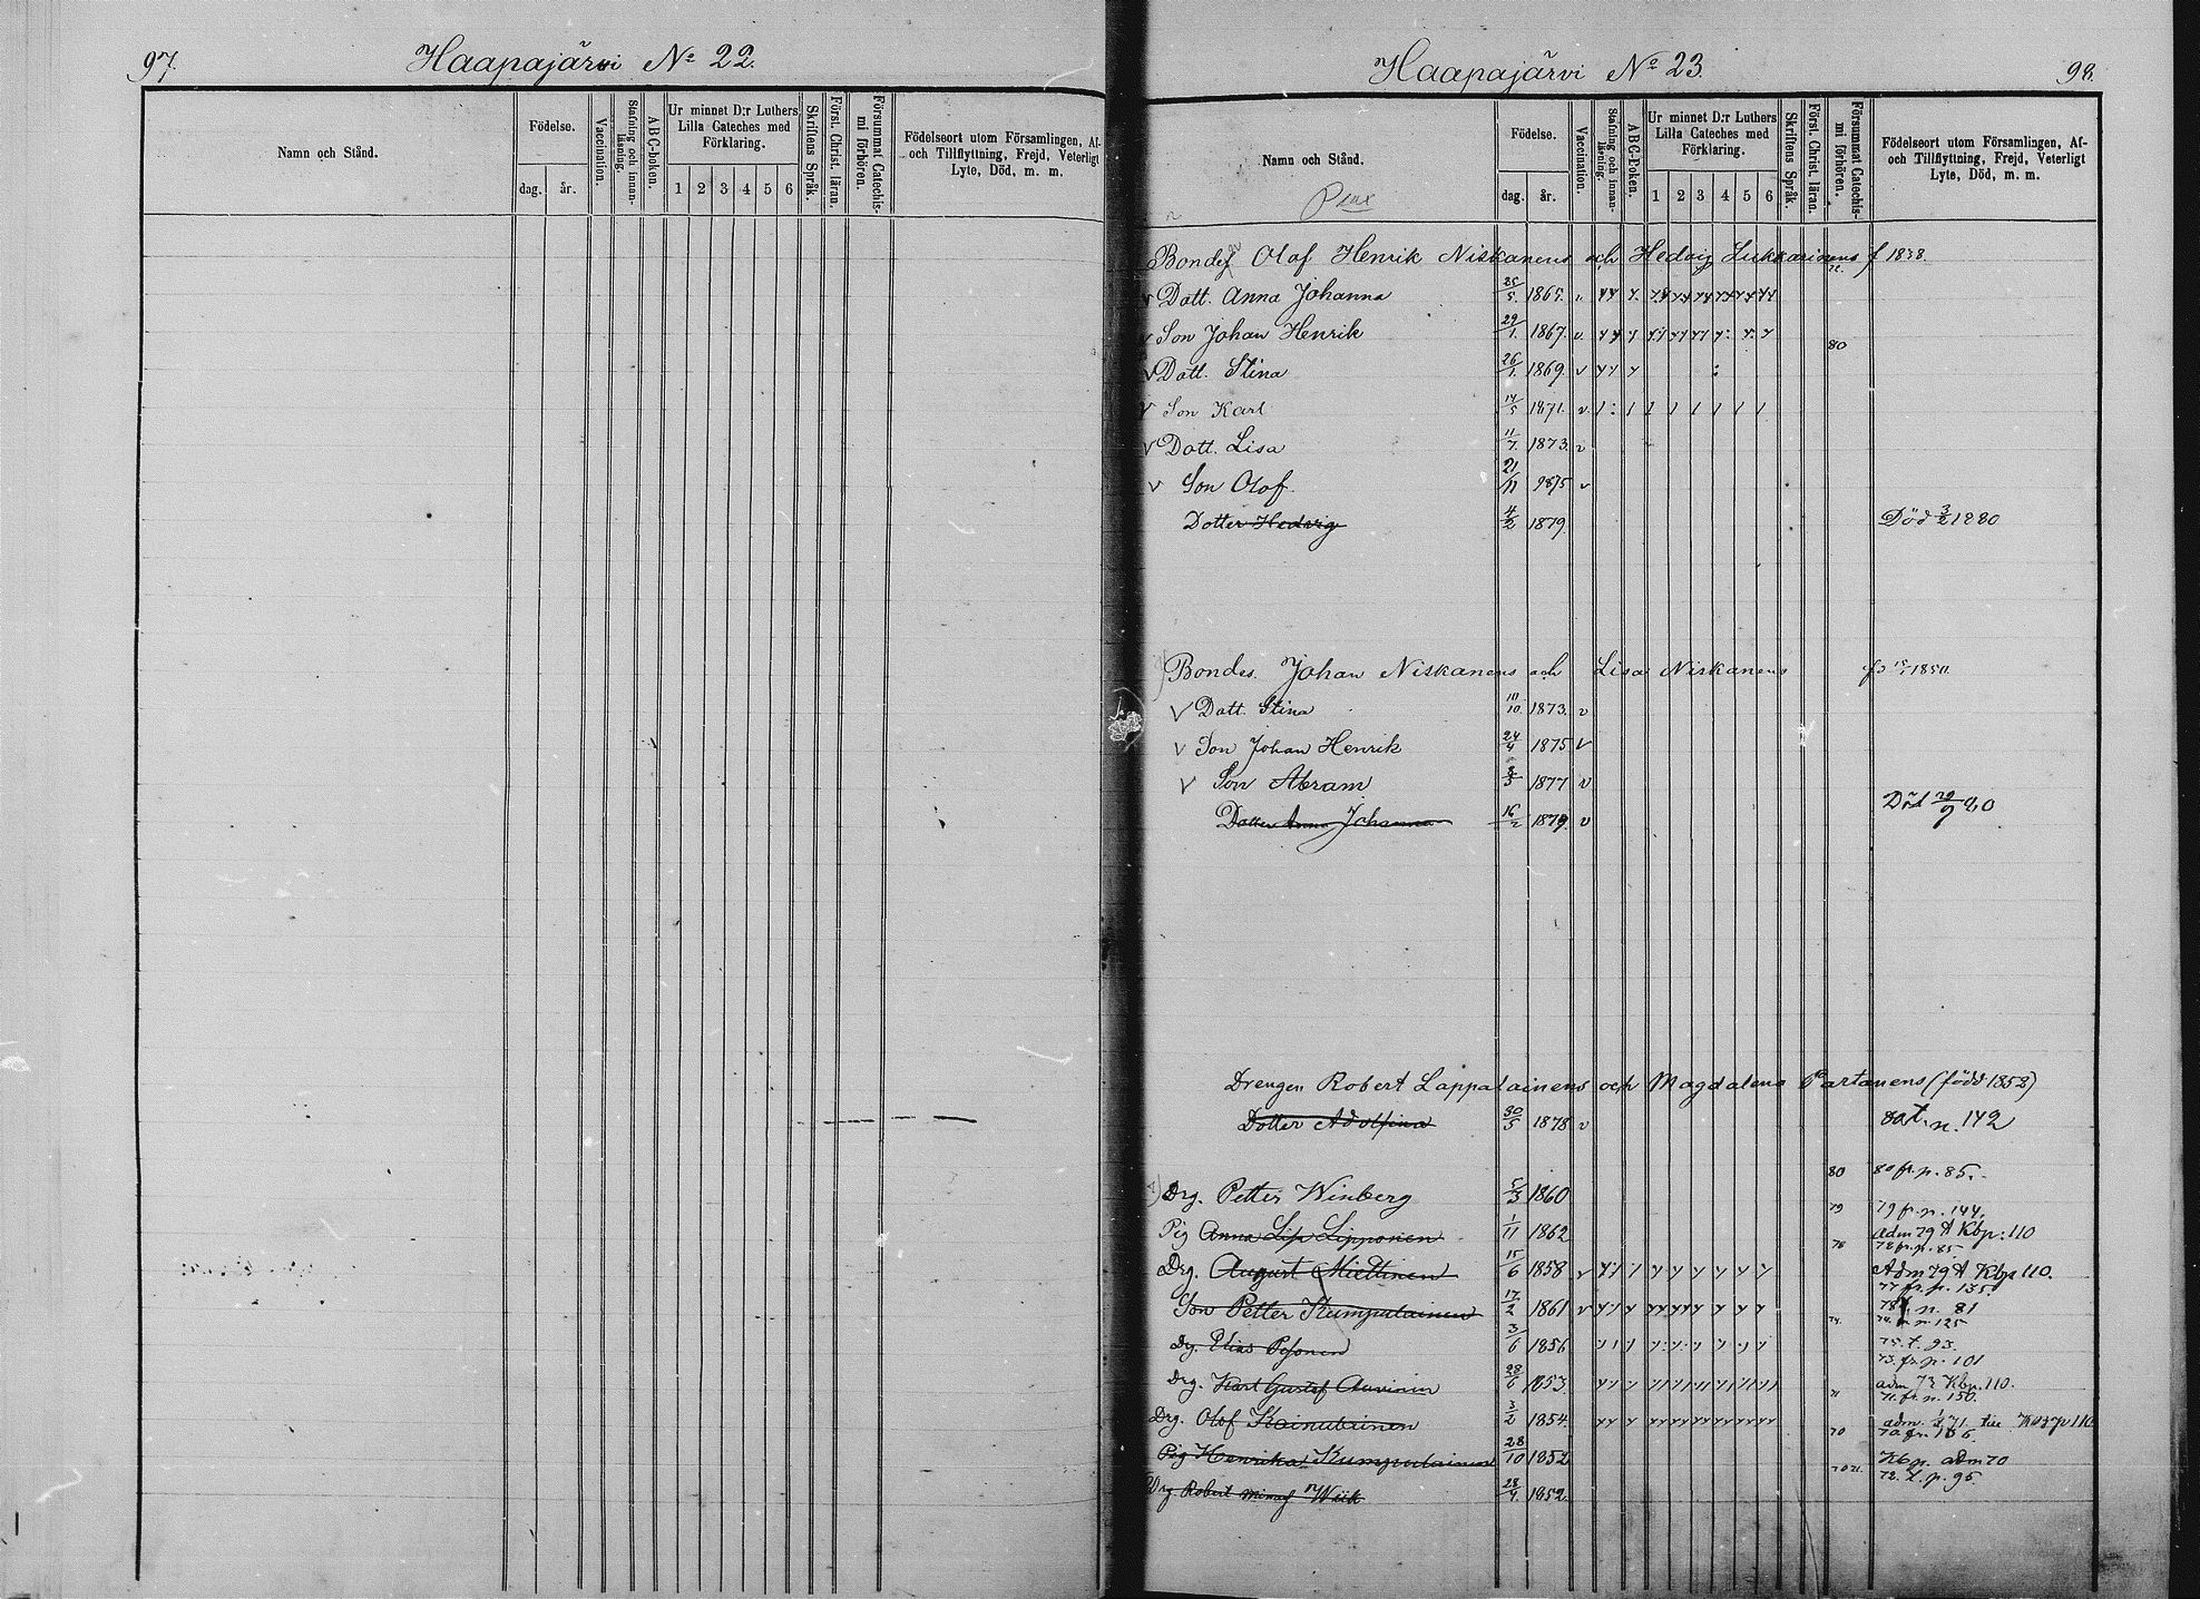 97. Haapajärvi No 22.
Namn och Stånd.
Födelse.
dag. år.
Vaccination.
Stafning och innanläsning.
ABC-boken.
Ur minnet D:r Luthers Lilla Cateches med Förklaring.
1 2 3 4 5 6
Skriftens Språk.
Först. Christ. läran.
Försummat Catechismi förhören.
Födelseort utom Församlingen, Af- och Tillflyttning, Frejd, Veterligt Lyte, Död, m. m.
Haapajärvi No 23. 98.
Namn och Stånd.
Födelse.
dag. år.
Vaccination.
Stafning och innanläsning.
ABC-boken.
Ur minnet D:r Luthers Lilla Cateches med Förklaring.
1 2 3 4 5 6
Skriftens Språk.
Först. Christ. läran.
Försummat Catechismi förhören.
Födelseort utom Församlingen, Af- och Tillflyttning, Frejd, Veterligt Lyte, Död, m. m.
Olof Henrik Niskanens och Hedvig Lukkarinens f 1838.
Dott. Anna Johanna 25/5. 1865.
Son Johan Henrik 29/1. 1867. v. 80
v Dott. Stina 26/1. 1869. v
v Son Karl 14/5 1871. v.
v Dott. Lisa 11/7. 1873. v
v Son Olof 21/11 1875 v
Dotter Hedvig 4/2 1879. Död 3/2 1880
Bondes. Johan Niskanens och Lisa Niskanens
v Dott. Stina 10/10. 1873. v
v Son Johan Henrik 24/4 1875 v
v Son Abram 1877 v
Dotter Anna Johanna 16/2 1879. v Död 29/9 80
Drengen Robert Lappalainens och Magdalena Partanens (född 1858)
Dotter Adolfina 30/5 1878 v 80 t. n. 142
Drg. Petter Winberg 5/3 1860 80 80 fr. p. 85.
Pig Anna Lisa Lipponen 1/11 1862 79 79 fr. p. 144. adm 79 A Kbp: 110
Drg. August Miettinen 15/6 1858 v 78 78 fr. p. 85 Adm 79 A Kbp 110.
Son Petter Kumpulainen 17/2 1861 v 77 fr. p. 135. 78 n. 81
Dg. Elias Pesonen 3/6 1856 74. 74. fr. n. 125 75. t. 93.
Drg. Karl Gustaf Auvinen 28/6 1853. 73. fr. p. 101 adm 73 Kbp. 110.
Drg. Olof Kainulainen 3/2 1854. 71 71. fr. n. 150. adm.
Pig Henrika Kumpulainen 28/10 1852 70 Kbp. adm 70
Drg Robert Wiik 28/4. 1852. 72. t. p. 95